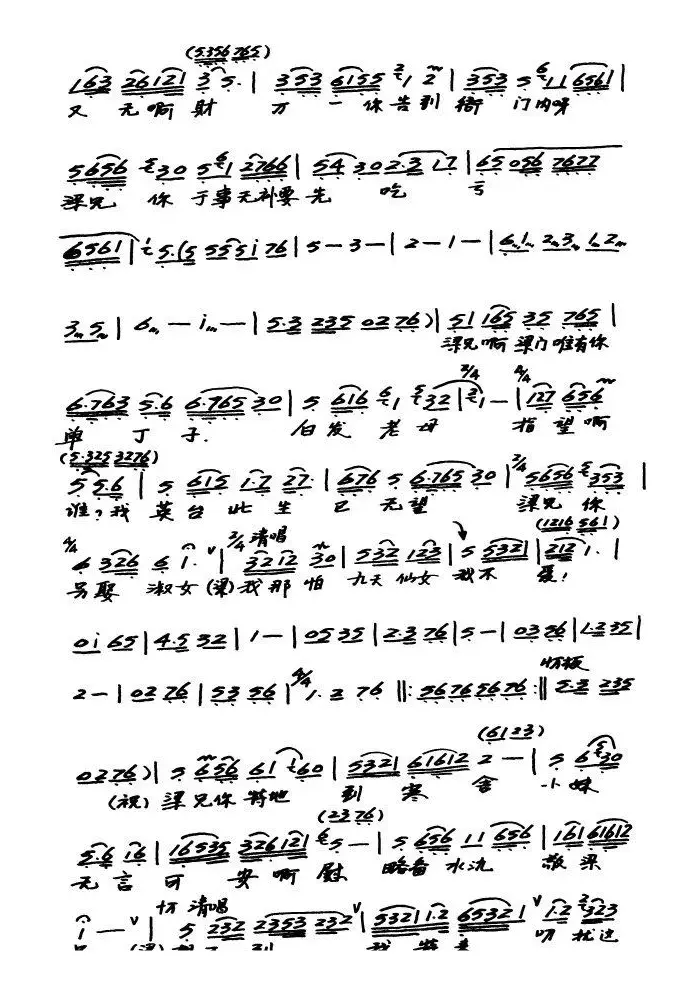 (5.356 765)
163 26121 3 5. | 353 6155 2 1 2 | 353 5 6 11 6561 |
又 无啊 财 万 一 你告到 衙 门内呀
5656 6 30 5 6 1 2766 | 54 302.3 17 | 65 056 7677
梁兄 你 于事无补要先 吃 亏
6561 | i 5.(5 555i 76 | 5 - 3 - | 2 - 1 - | 6 1 2 3 1 2
3 5 | 6 - i - | 5.3 235 0276) | 51 165 35 765 |
梁兄啊 梁门唯有你
3/4 2/4
6.763 5.6 6.765 30 | 5 616 6 1 5 32 | 2 1 - | 127 656
单 丁 子. 白发 老母 指望啊
(5.325 3276)
5 5.6 | 5 615 1.7 27. | 676 5 6.765 30 | 5656 353 |
谁？我 英台 此生 已 无望 梁兄 你
4/4 2/4 清唱 (1216 561)
6 326 6 i. | 3212 30 | 532 123 | 5 5321 | 212 1. |
另娶 淑女 (梁)我那 怕 九天 仙女 我不 爱！
0i 65 | 4.5 32 | 1 - | 05 35 | 2.3 76 | 5 - | 03 56 | 1.235 |
2 - | 02 76 | 53 56 | 4/4 1. 2 76 ‖: 56765676 :‖ 5.3 235
(6123)
0276) | 5 656 61 i 60 | 5321 61612 2 - | 5 6 5 30
(祝) 梁兄你 特地 到 寒 舍 小妹
(2376)
5.6 16 | 16535 326121 6 5 - | 5 656 11 656 | 161 61612
无言 可 安啊 慰 略备 水氿 敬梁
清唱
i - | 5 232 2353 232 | 5321 1.2 65321 1.2 2 323
叨扰这